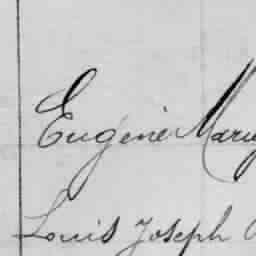 Eugène Mary
Louis Joseph